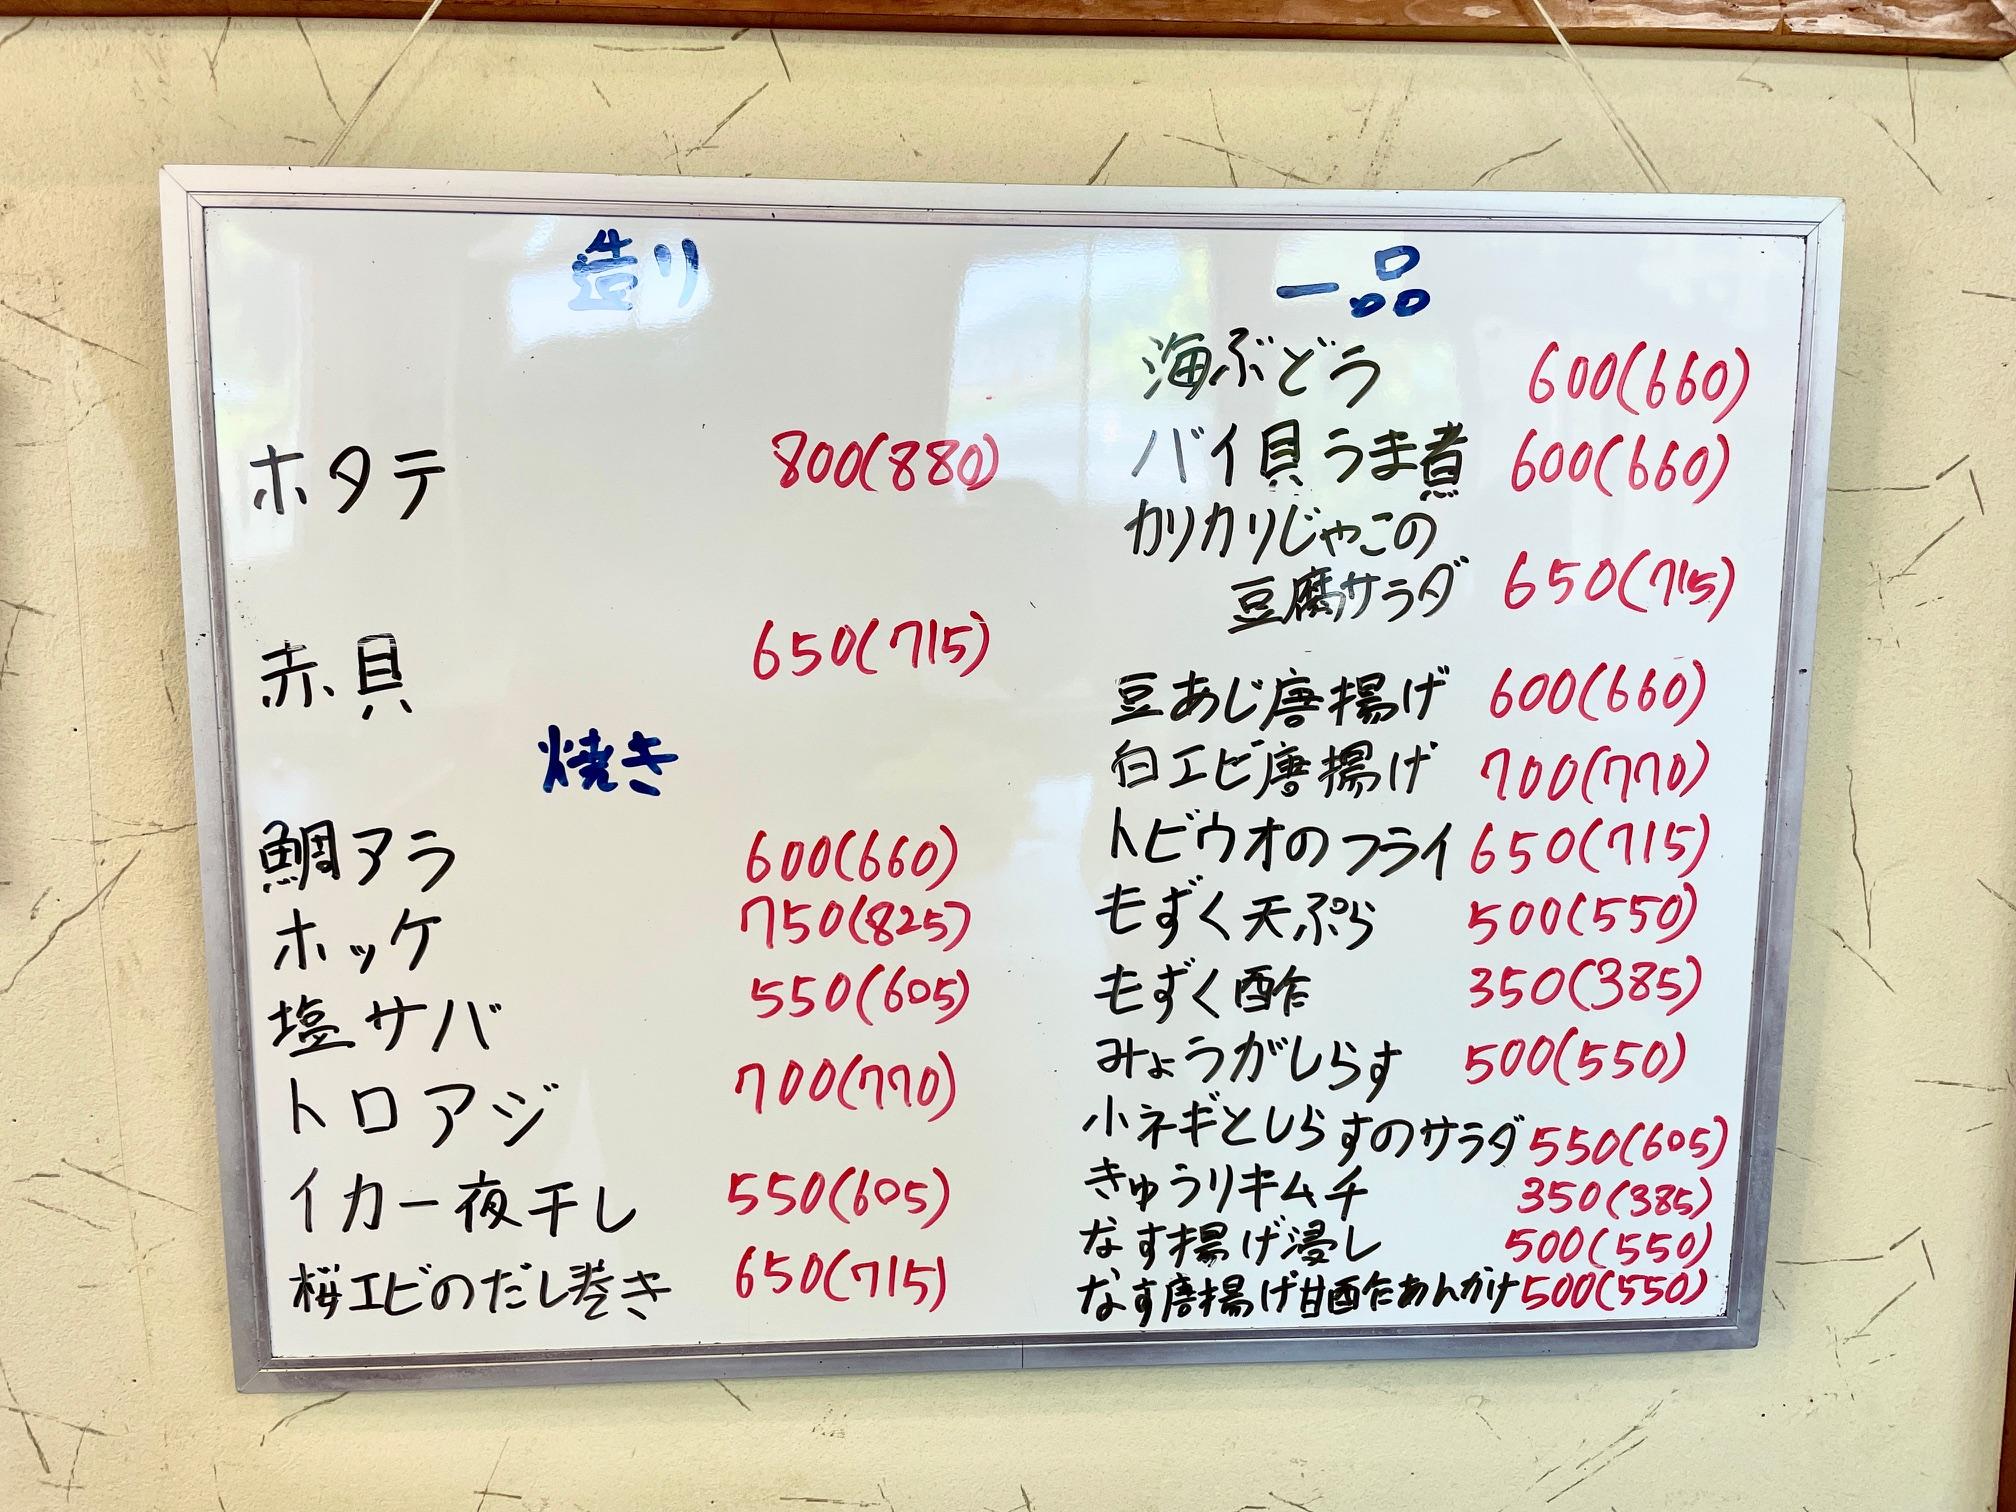 造り
ホタテ 800(880)
赤貝 650(715)
焼き
鯛アラ 600(660)
ホッケ 750(825)
塩サバ 550(605)
トロアジ 700(770)
イカ一夜干し 550(605)
桜エビのだし巻き 650(715)
一品
海ぶどう 600(660)
バイ貝うま煮 600(660)
カリカリじゃこの
豆腐サラダ 650(715)
豆あじ唐揚げ 600(660)
白エビ唐揚げ 700(770)
トビウオのフライ 650(715)
もずく天ぷら 500(550)
もずく酢 350(385)
みょうがしらす 500(550)
小ネギとしらすのサラダ 550(605)
きゅうりキムチ 350(385)
なす揚げ浸し 500(550)
なす唐揚げ甘酢あんかけ 500(550)